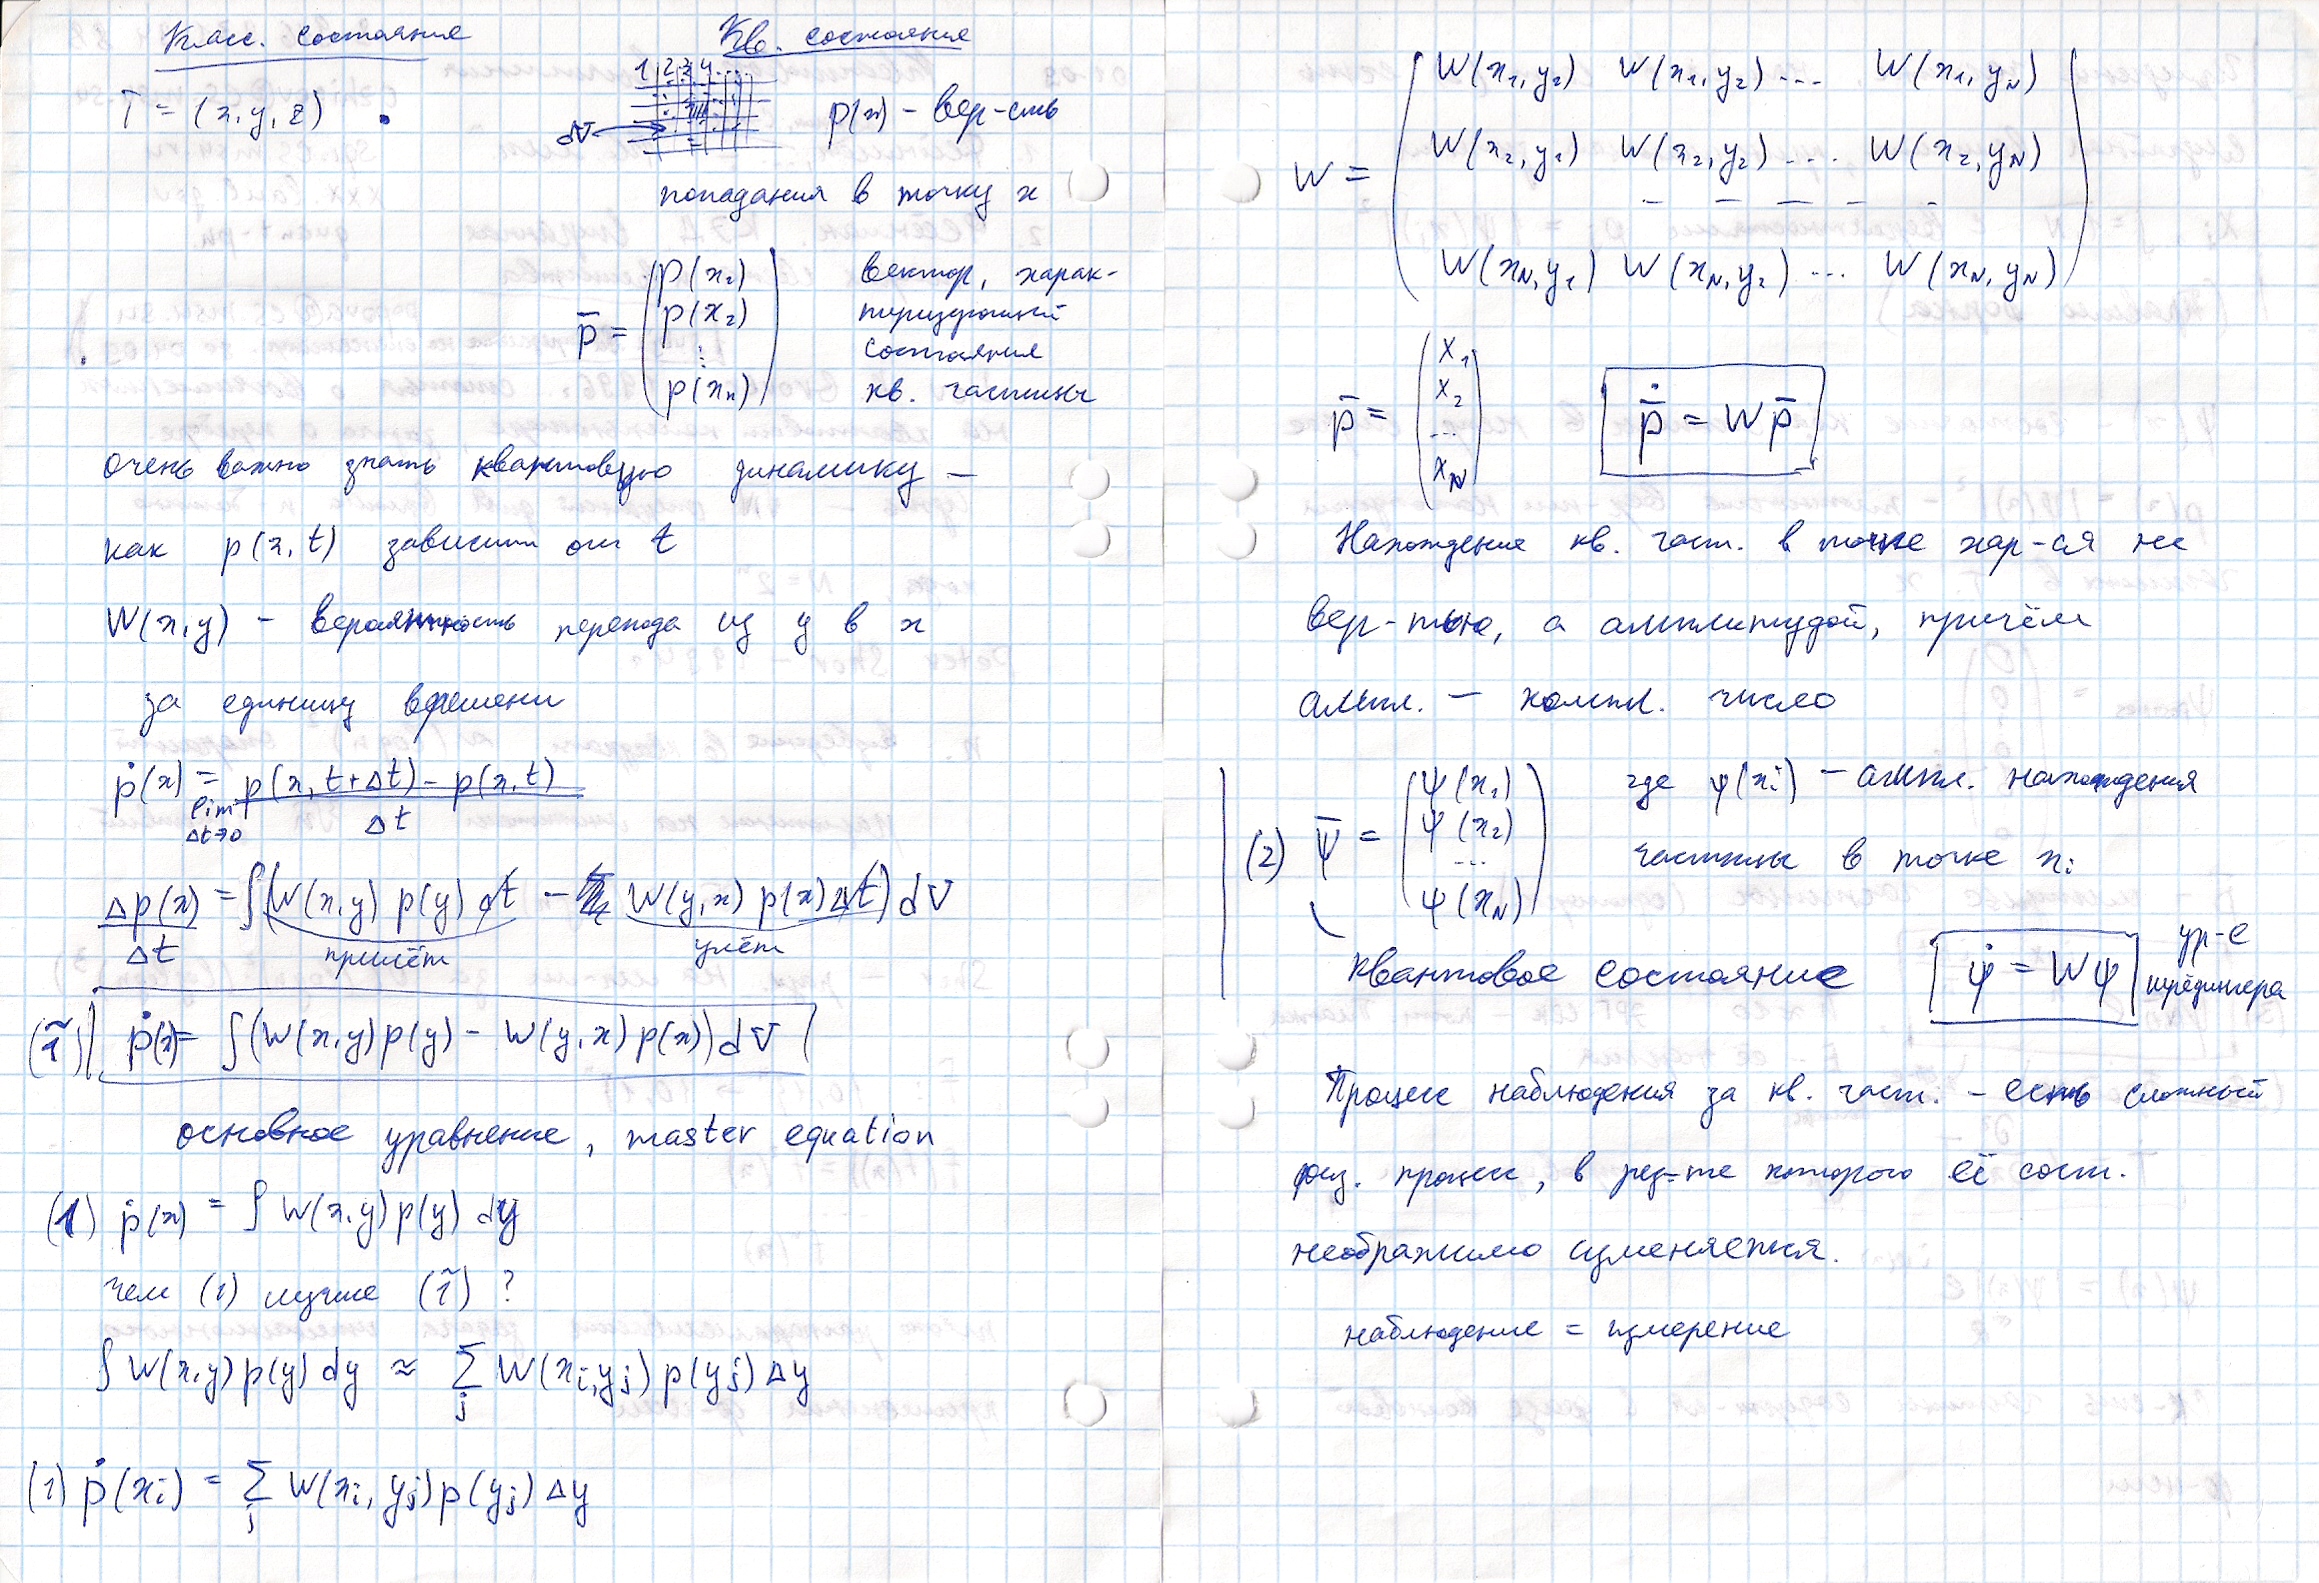 Класс. состояние
T = (x, y, z) .
Кв. состояние
1 2 3 4 ...
dV
p(x) – вер-сть
попадания в точку x
p̄ = ( p(x₁) p(x₂) ⋮ p(xₙ) )
вектор, харак-
теризующий
состояния
кв. частицы
очень важно знать квантовую динамику –
как p(x, t) зависит от t
W(x, y) – вероятность перехода из y в x
за единицу времени
ṗ(x) = lim Δt→0 (p(x, t+Δt) – p(x, t)) / Δt
Δp(x) / Δt = ∫(W(x,y) p(y) Δt – W(y,x) p(x) Δt) dV
прилёт улёт
(1̃) ṗ(x) = ∫(W(x,y) p(y) – W(y,x) p(x)) dV
основное уравнение, master equation
(1) ṗ(x) = ∫ W(x,y) p(y) dy
чем (1) лучше (1̃) ?
∫ W(x,y) p(y) dy ≈ Σⱼ W(xᵢ, yⱼ) p(yⱼ) Δy
(1) ṗ(xᵢ) = Σⱼ W(xᵢ, yⱼ) p(yⱼ) Δy
W(x₁, y₂) W(x₁, y₂) ... W(x₁, y_N)
W = W(x₂, y₁) W(x₂, y₂) ... W(x₂, y_N)
– – – – –
W(x_N, y₁) W(x_N, y₂) ... W(x_N, y_N)
p̄ = ( x₁ x₂ ... x_N )
p̄̇ = W p̄
Нахождение кв. част. в точке хар-ся не
вер-тью, а амплитудой, причём
ампл. – компл. число
(2) ψ̄ = ( ψ(x₁) ψ(x₂) ... ψ(x_N) )
где ψ(xᵢ) – ампл. нахождения
частицы в точке xᵢ
квантовое состояние
ψ̇ = Wψ
ур-е
шрёдингера
Процесс наблюдения за кв. част. – есть сложный
физ. процесс, в рез-те которого её сост.
необратимо изменяется.
наблюдение = измерение